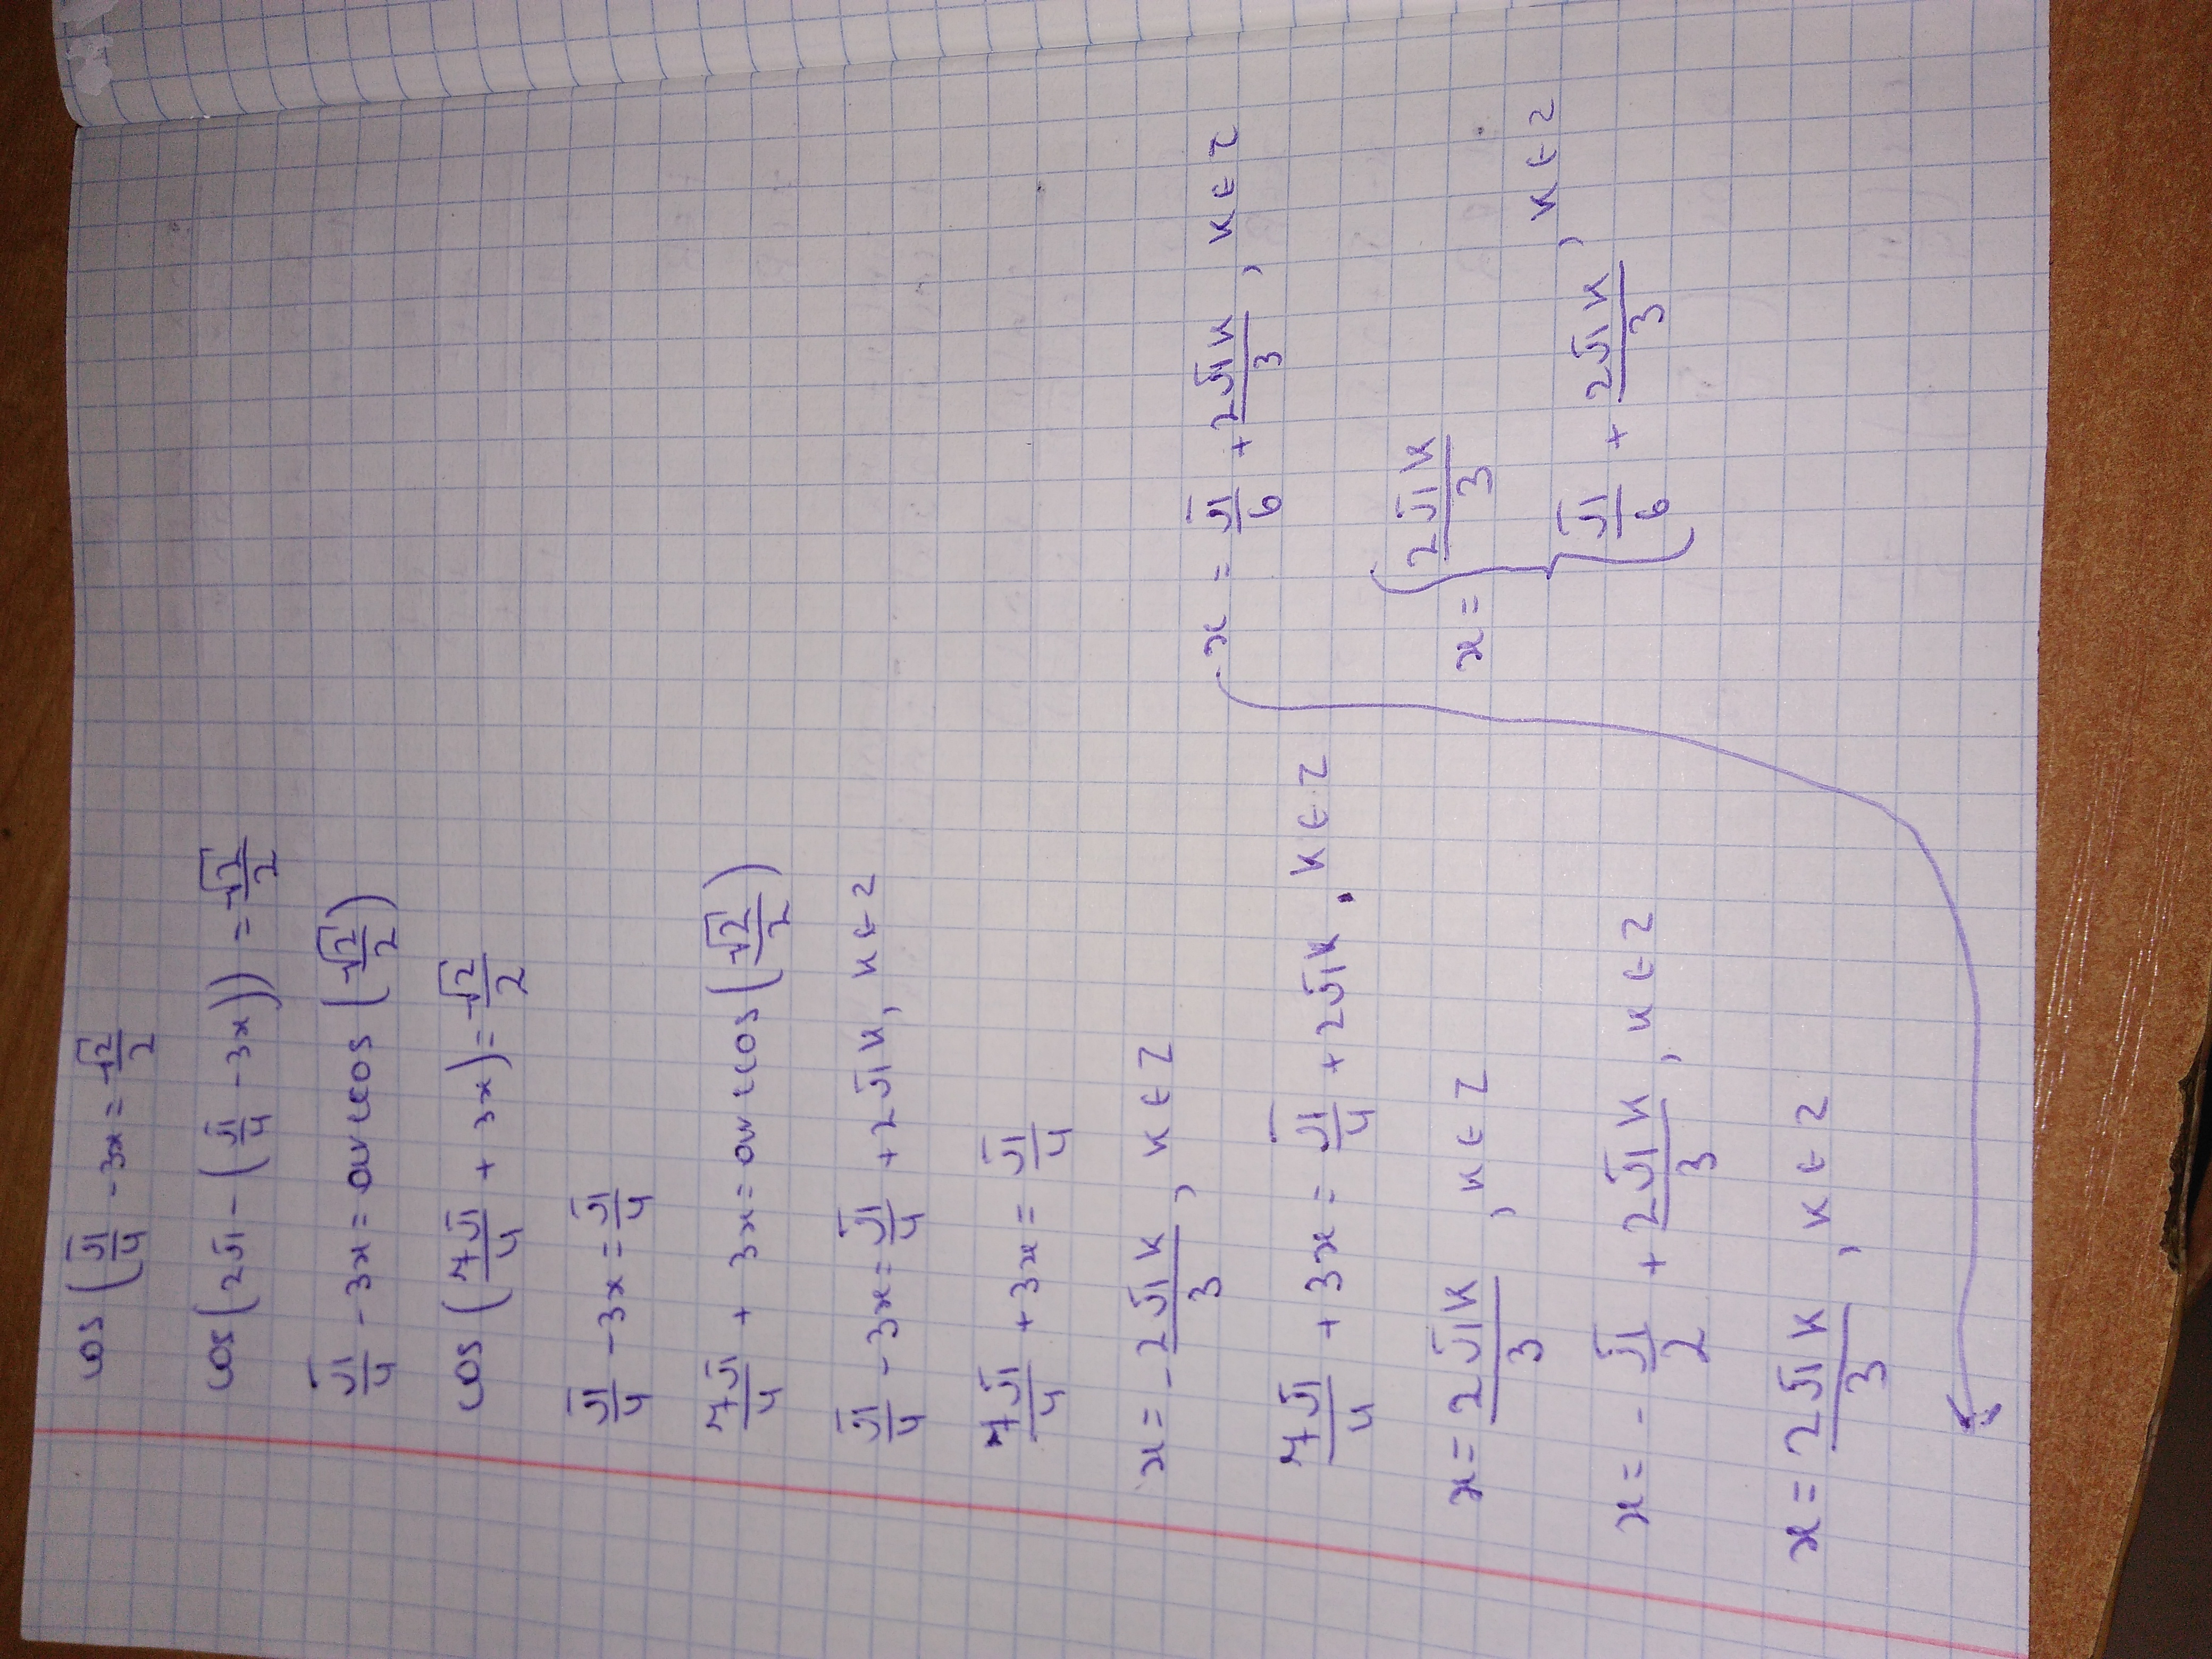 cos(π/4 - 3x = √2/2
cos(2π - (π/4 - 3x)) = √2/2
π/4 - 3x = arccos(√2/2)
cos(7π/4 + 3x) = √2/2
π/4 - 3x = π/4
7π/4 + 3x = arccos(√2/2)
π/4 - 3x = π/4 + 2πk, k ∈ Z
7π/4 + 3x = π/4
x = -2πk/3, k ∈ Z
7π/4 + 3x = π/4 + 2πk. k ∈ Z
x = 2πk/3, k ∈ Z
x = -π/2 + 2πk/3, k ∈ Z
x = 2πk/3, k ∈ Z
x = π/6 + 2πk/3, k ∈ Z
x = { 2πk/3
π/6 + 2πk/3, k ∈ Z